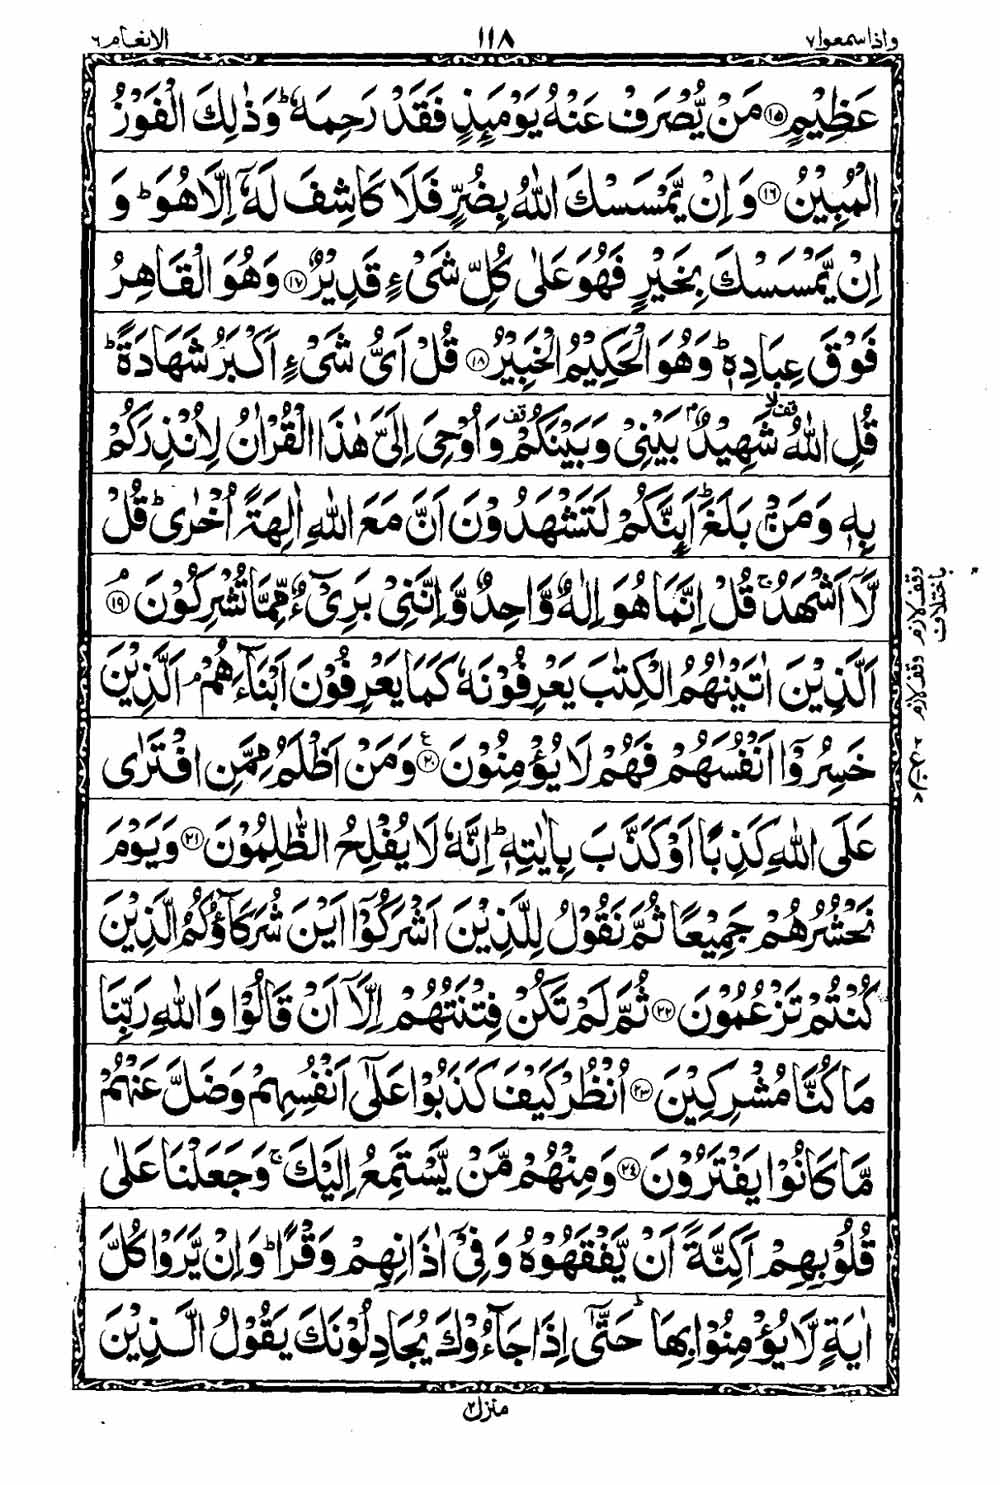 واذاسمعوا٧ ١١٨ الانعام٦
عَظِيْمٍ ⑮ مَنْ يُّصْرَفْ عَنْهُ يَوْمَىِٕذٍ فَقَدْ رَحِمَهٗ ؕ وَذٰلِكَ الْفَوْزُ
الْمُبِيْنُ ⑯ وَاِنْ يَّمْسَسْكَ اللّٰهُ بِضُرٍّ فَلَا كَاشِفَ لَهٗۤ اِلَّا هُوَ ؕ وَ
اِنْ يَّمْسَسْكَ بِخَيْرٍ فَهُوَ عَلٰى كُلِّ شَىْءٍ قَدِيْرٌ ⑰ وَهُوَ الْقَاهِرُ
فَوْقَ عِبَادِهٖ ؕ وَهُوَ الْحَكِيْمُ الْخَبِيْرُ ⑱ قُلْ اَىُّ شَىْءٍ اَكْبَرُ شَهَادَةً ؕ
قُلِ اللّٰهُ قف لا شَهِيْدٌۢ بَيْنِىْ وَبَيْنَكُمْ قف وَاُوْحِىَ اِلَىَّ هٰذَا الْقُرْاٰنُ لِاُنْذِرَكُمْ
بِهٖ وَمَنْۢ بَلَغَ ؕ اَىِٕنَّكُمْ لَتَشْهَدُوْنَ اَنَّ مَعَ اللّٰهِ اٰلِهَةً اُخْرٰى ؕ قُلْ
لَّاۤ اَشْهَدُ ۚ قُلْ اِنَّمَا هُوَ اِلٰهٌ وَّاحِدٌ وَّاِنَّنِىْ بَرِىْٓءٌ مِّمَّا تُشْرِكُوْنَ ⑲ ۘ
اَلَّذِيْنَ اٰتَيْنٰهُمُ الْكِتٰبَ يَعْرِفُوْنَهٗ كَمَا يَعْرِفُوْنَ اَبْنَآءَهُمْ ۘ اَلَّذِيْنَ
خَسِرُوْۤا اَنْفُسَهُمْ فَهُمْ لَا يُؤْمِنُوْنَ ⑳ ع وَمَنْ اَظْلَمُ مِمَّنِ افْتَرٰى
عَلَى اللّٰهِ كَذِبًا اَوْ كَذَّبَ بِاٰيٰتِهٖ ؕ اِنَّهٗ لَا يُفْلِحُ الظّٰلِمُوْنَ ㉑ وَيَوْمَ
نَحْشُرُهُمْ جَمِيْعًا ثُمَّ نَقُوْلُ لِلَّذِيْنَ اَشْرَكُوْۤا اَيْنَ شُرَكَآؤُكُمُ الَّذِيْنَ
كُنْتُمْ تَزْعُمُوْنَ ㉒ ثُمَّ لَمْ تَكُنْ فِتْنَتُهُمْ اِلَّاۤ اَنْ قَالُوْا وَاللّٰهِ رَبِّنَا
مَا كُنَّا مُشْرِكِيْنَ ㉓ اُنْظُرْ كَيْفَ كَذَبُوْا عَلٰۤى اَنْفُسِهِمْ وَضَلَّ عَنْهُمْ
مَّا كَانُوْا يَفْتَرُوْنَ ㉔ وَمِنْهُمْ مَّنْ يَّسْتَمِعُ اِلَيْكَ ۚ وَجَعَلْنَا عَلٰى
قُلُوْبِهِمْ اَكِنَّةً اَنْ يَّفْقَهُوْهُ وَفِىْۤ اٰذَانِهِمْ وَقْرًا ؕ وَاِنْ يَّرَوْا كُلَّ
اٰيَةٍ لَّا يُؤْمِنُوْا بِهَا ؕ حَتّٰۤى اِذَا جَآءُوْكَ يُجَادِلُوْنَكَ يَقُوْلُ الَّذِيْنَ
منزل٢
وقف لازم
باختلاف
وقف لازم